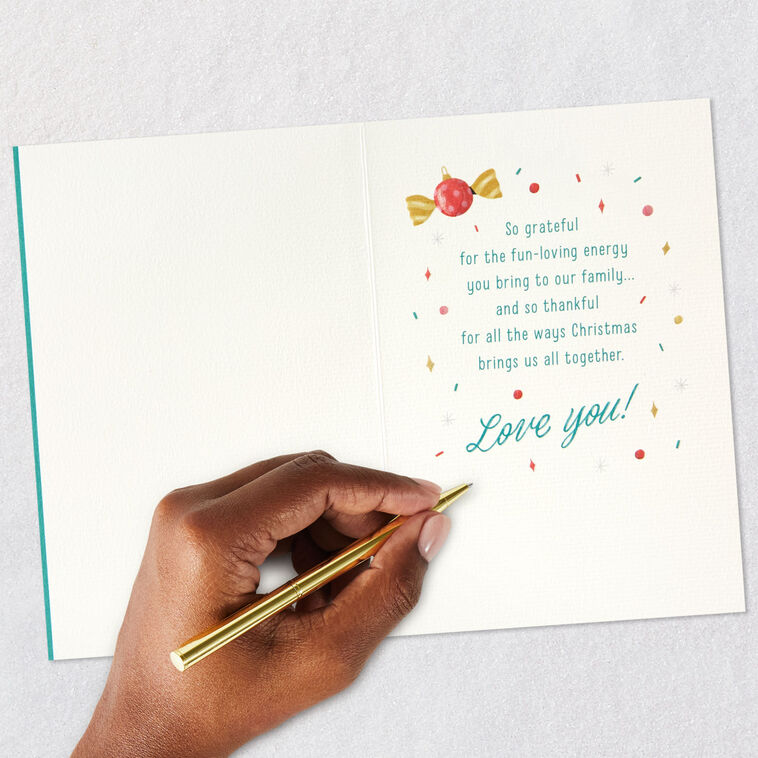 So grateful
for the fun-loving energy
you bring to our family...
and so thankful
for all the ways Christmas
brings us all together.
Love you!